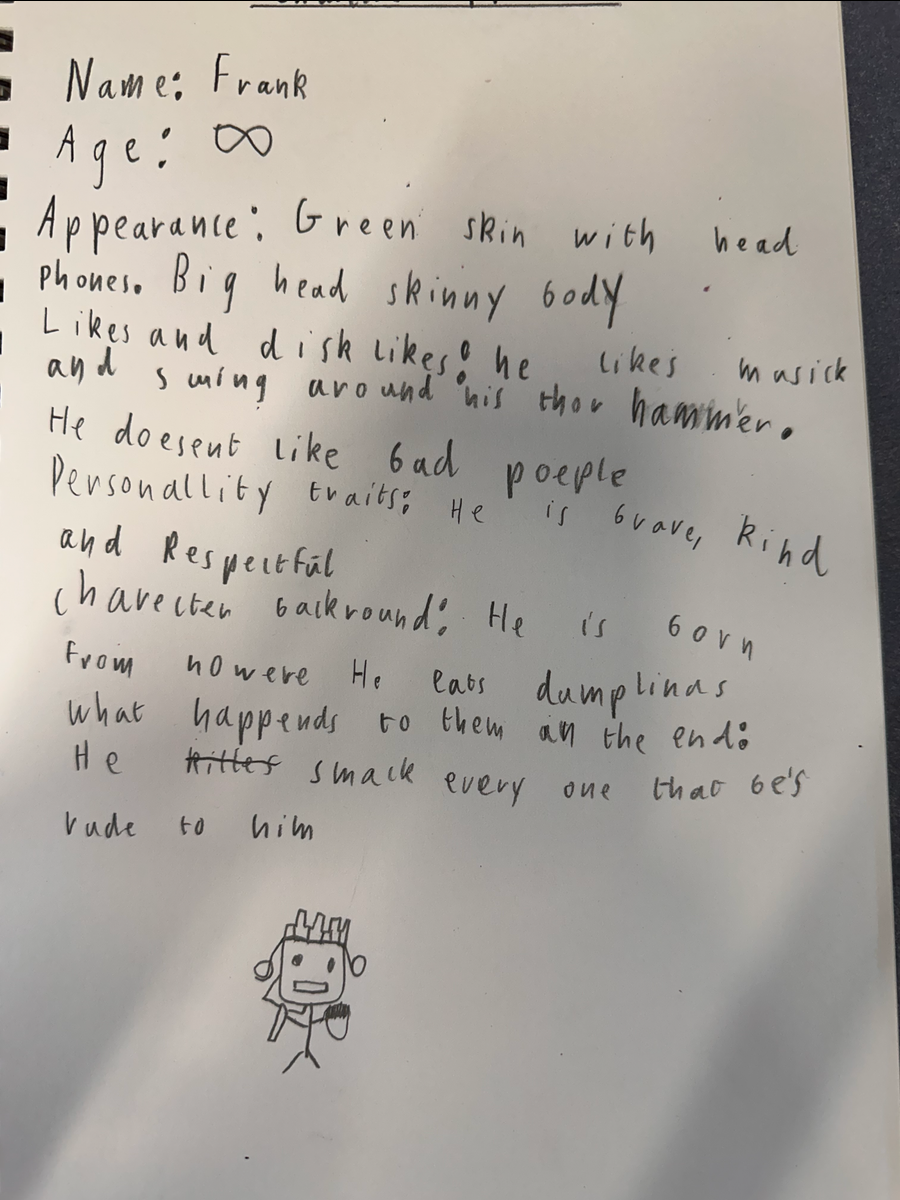 Name: Frank
Age: ∞
Appearance: Green skin with head
phones. Big head skinny body
Likes and disklikes: he likes musick
and swing around his thor hammer.
He doesent like bad poeple
Personallity traits: He is brave, kind
and Respectful
charecter backround: He is born
from nowere He eats dumplinas
what happends to them in the end:
He smack every one that be's
rude to him